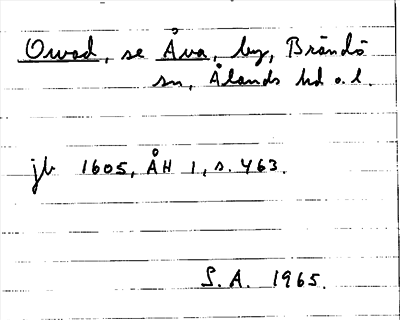 Owad, se Åva, by, Brändö
sn, Ålands hd o. l.
jb 1605, ÅH 1, s. 463.
S. A. 1965.